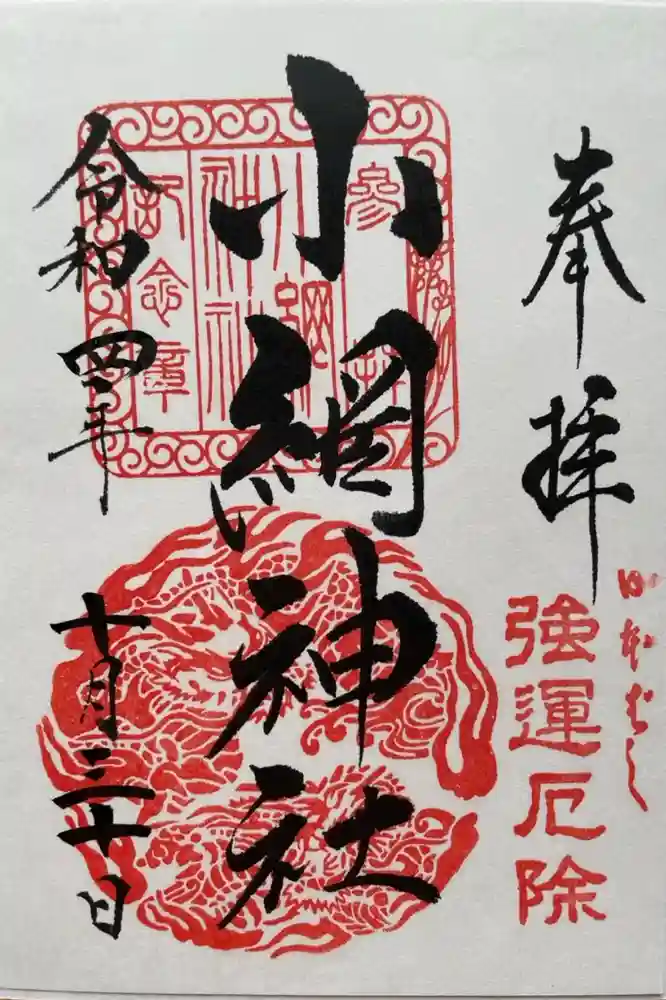 奉拝
強運厄除
日本ばし
小網神社
参拝
小網
神社
記念章
令和四年
十月三十日